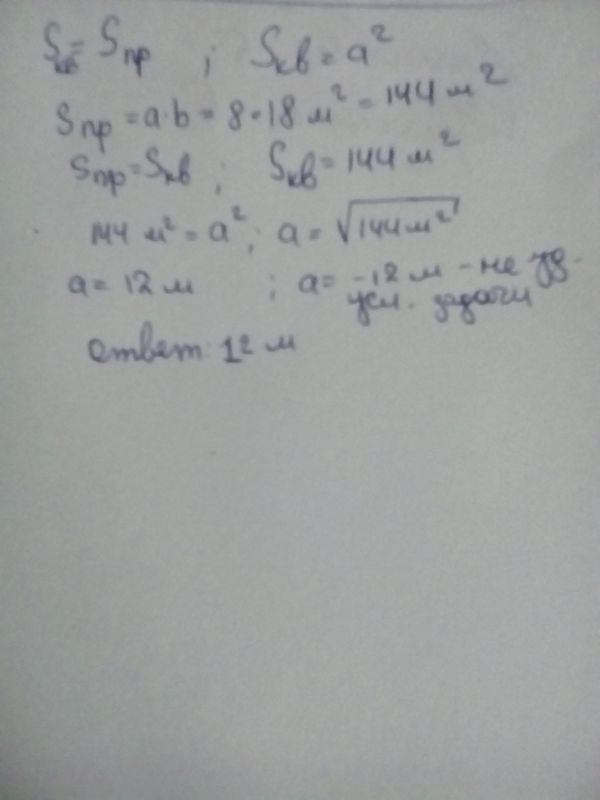 Sкв = Sпр ; Sкв = a²
Sпр = a·b = 8·18 м² = 144 м²
Sпр = Sкв ; Sкв = 144 м²
144 м² = a² ; a = √144 м²
a = 12 м ; a = -12 м - не уд.
усл. задачи
ответ: 12 м